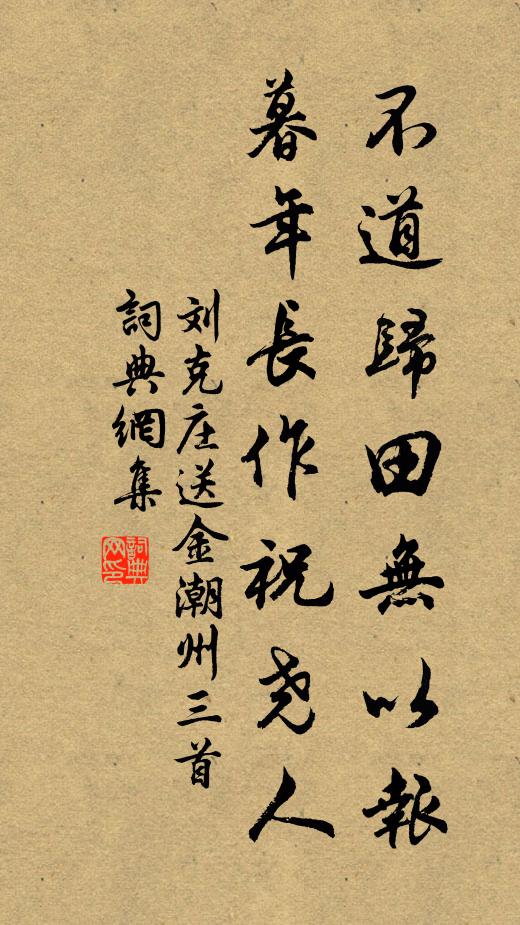 不道歸田無以報
暮年長作祝尧人
刘克庄送金潮州三首
詞典網集
詞典网印